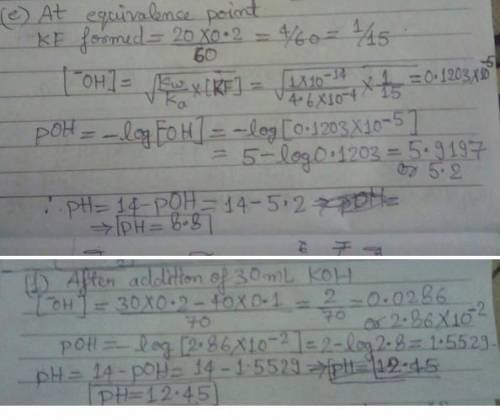 (e) At equivalence point
KF formed = 20×0.2/60 = 4/60 = 1/15
[⁻OH] = √(Kw/Ka × [KF]) = √(1×10⁻¹⁴/4.6×10⁻⁴ × 1/15) = 0.1203×10⁻⁵
pOH = -log[⁻OH] = -log[0.1203×10⁻⁵]
= 5-log0.1203 = 5.9197
or 5.2
∴ pH = 14-pOH = 14-5.2
⇒ pH = 8.8
(f) After addition of 30mL KOH
[⁻OH] = 30×0.2-40×0.1/70 = 2/70 = 0.0286
or 2.86×10⁻²
pOH = -log[2.86×10⁻²] = 2-log2.8 = 1.5529
pH = 14-pOH = 14-1.5529 ⇒ pH = 12.45
pH = 12.45